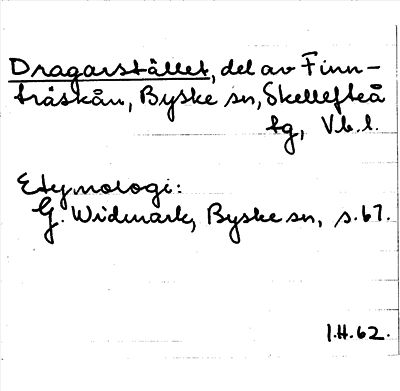 Dragarstället, del av Finn-
träskån, Byske sn, Skellefteå
tg, Vb.l.
Etymologi:
G. Widmark, Byske sn, s. 67.
I.H.62.